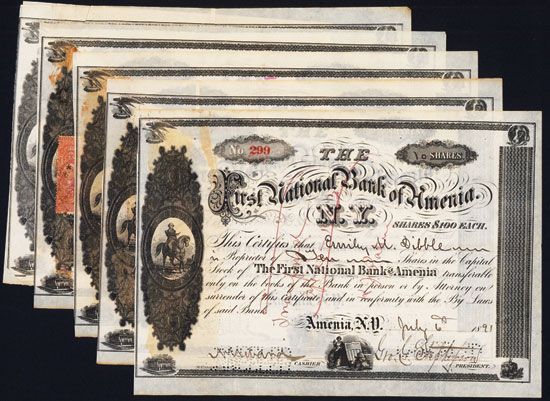 No 299
THE
SHARES.
First National Bank of Amenia.
N.Y.
SHARES $100 EACH.
This Certifies that Emily M. Dibble
is Proprietor of Ten Shares in the Capital
Stock of The First National Bank of Amenia transferable
only on the books of the Bank in person or by Attorney on
surrender of this Certificate and in conformity with the By Laws
of said Bank
Amenia, N.Y. July 6th 1891
CASHIER
PRESIDENT.